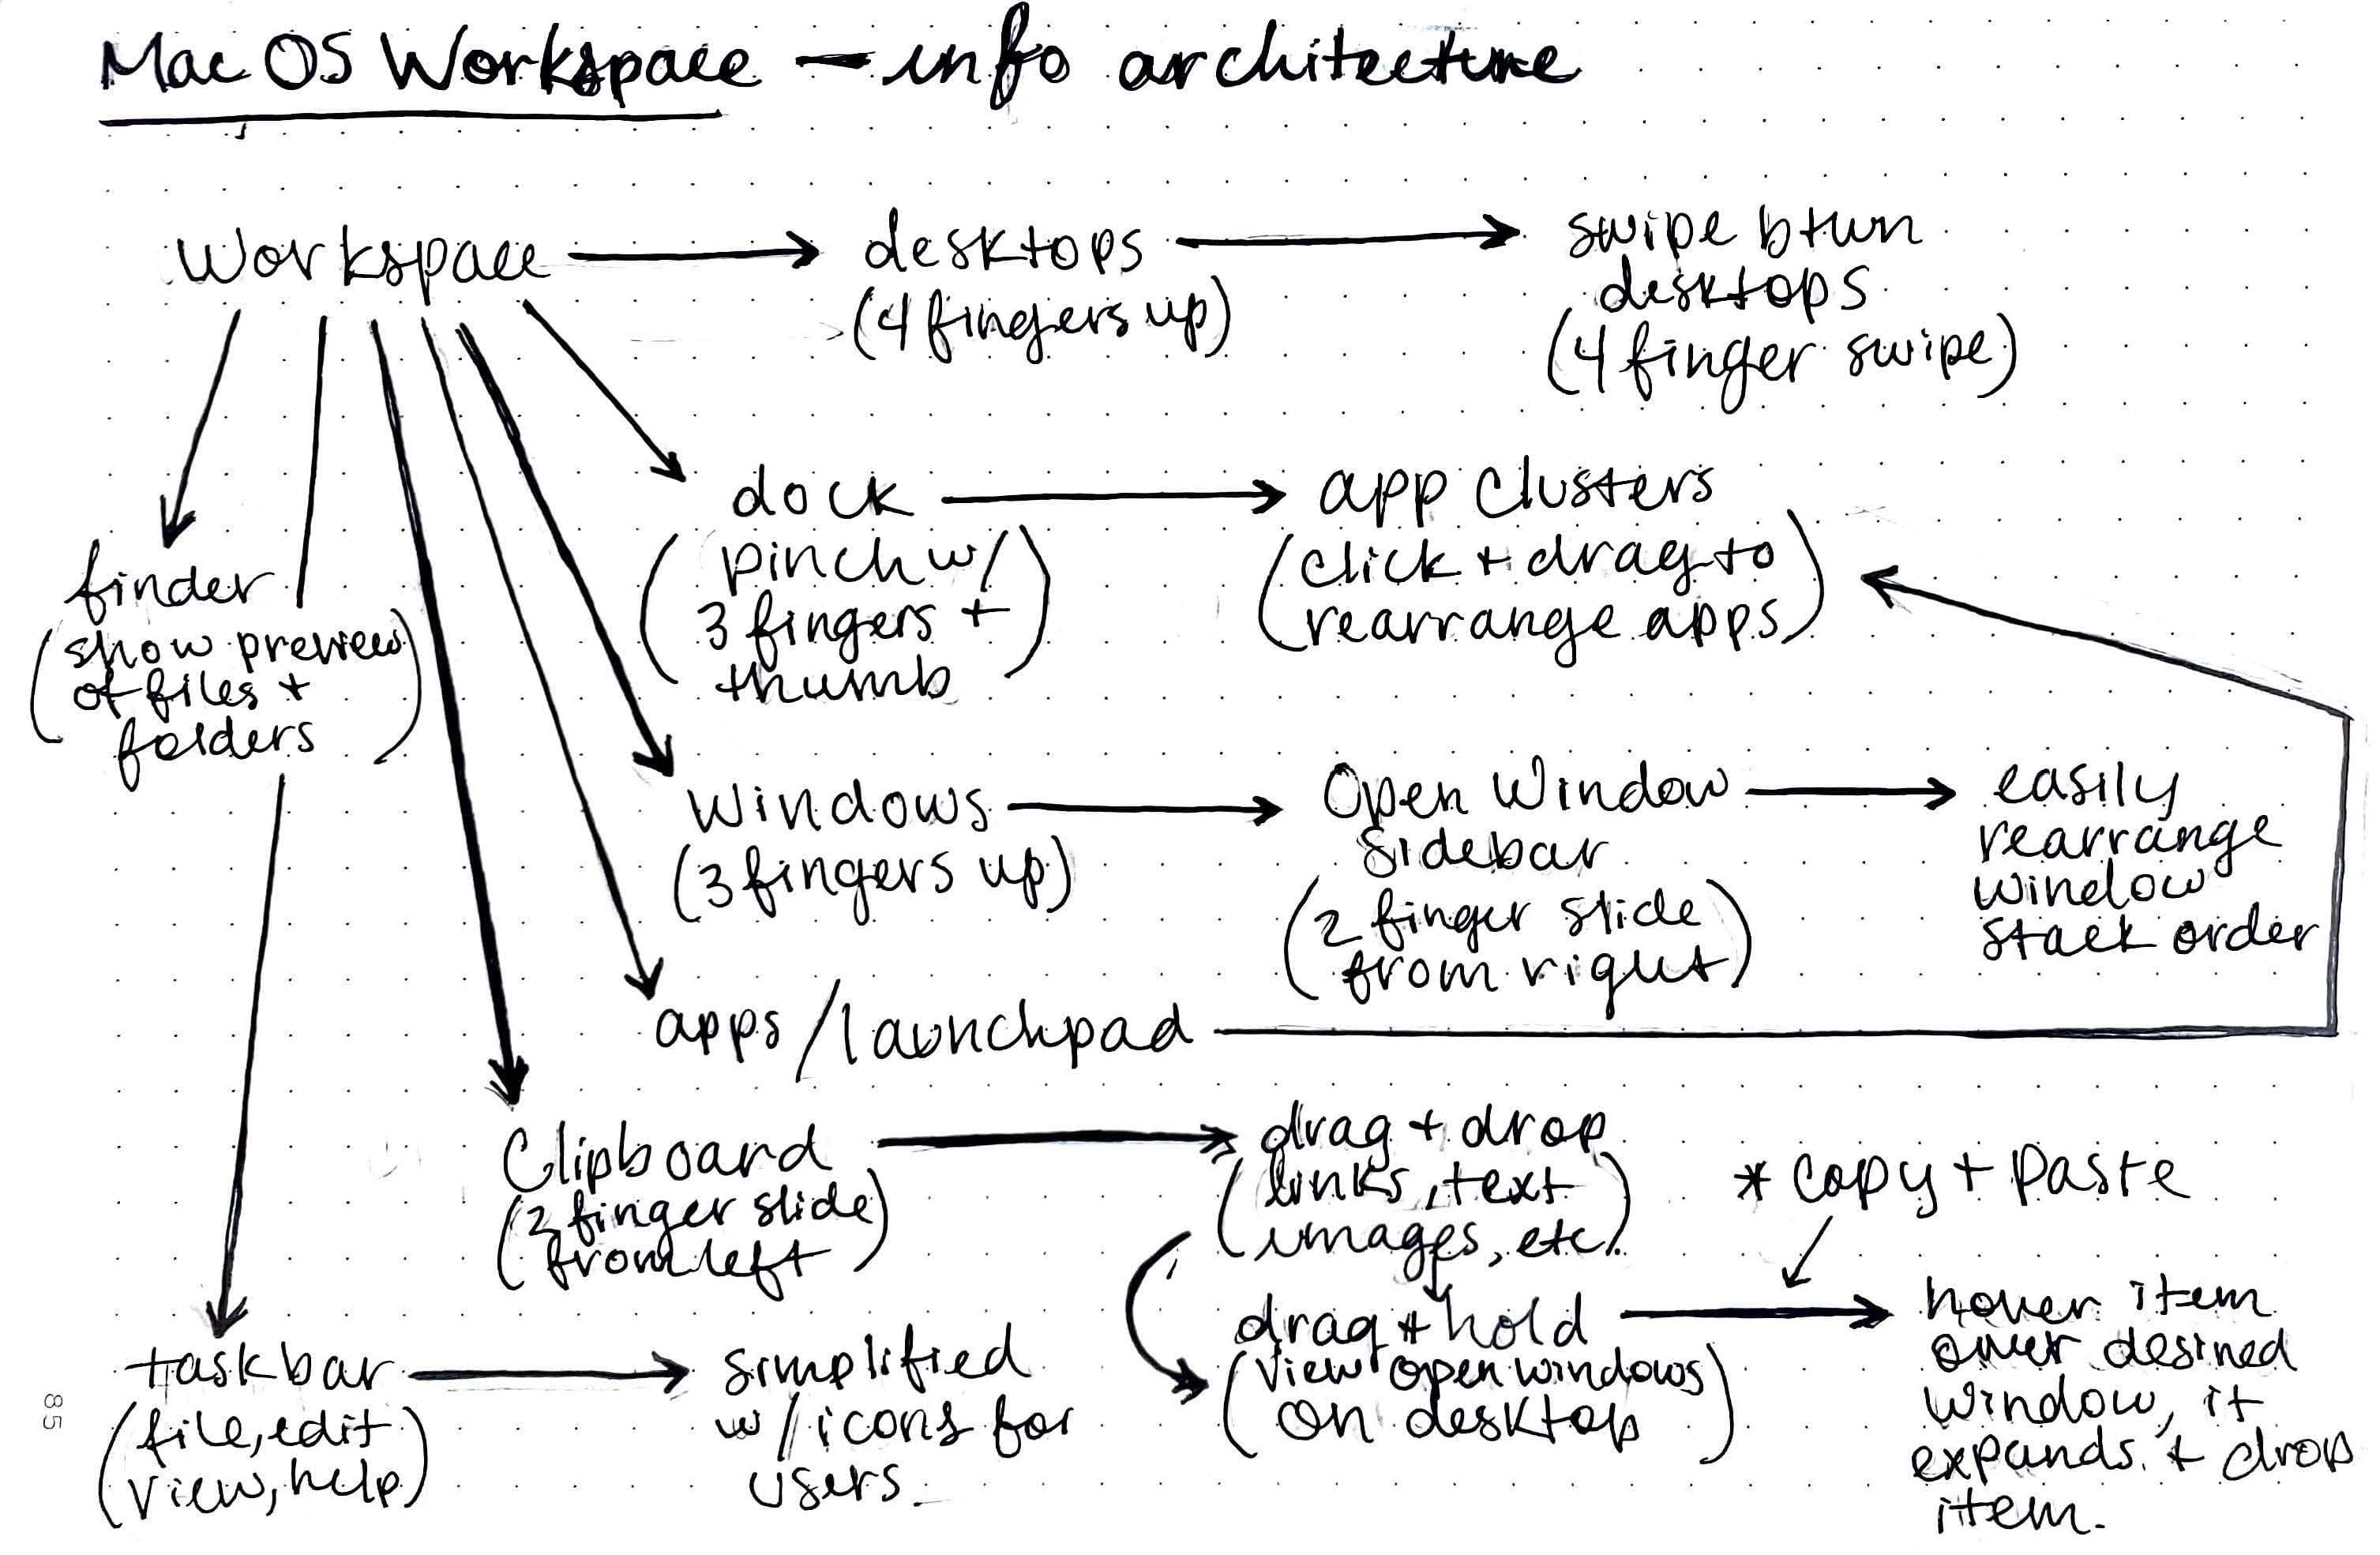 Mac OS Workspace — info architecture
Workspace
desktops
(4 fingers up)
swipe btwn
desktops
(4 finger swipe)
finder
(show preview
of files +
folders)
dock
(pinch w/
3 fingers +
thumb)
app clusters
(click + drag to
rearrange apps)
Windows
(3 fingers up)
Open Window
Sidebar
(2 finger slide
from right)
easily
rearrange
window
stack order
apps/launchpad
Clipboard
(2 finger slide
from left)
drag + drop
(links, text
images, etc.)
* Copy + Paste
drag + hold
(View open windows
on desktop)
hover item
over desired
window, it
expands + drop
item.
taskbar
(file, edit
view, help)
simplified
w/ icons for
users.
85